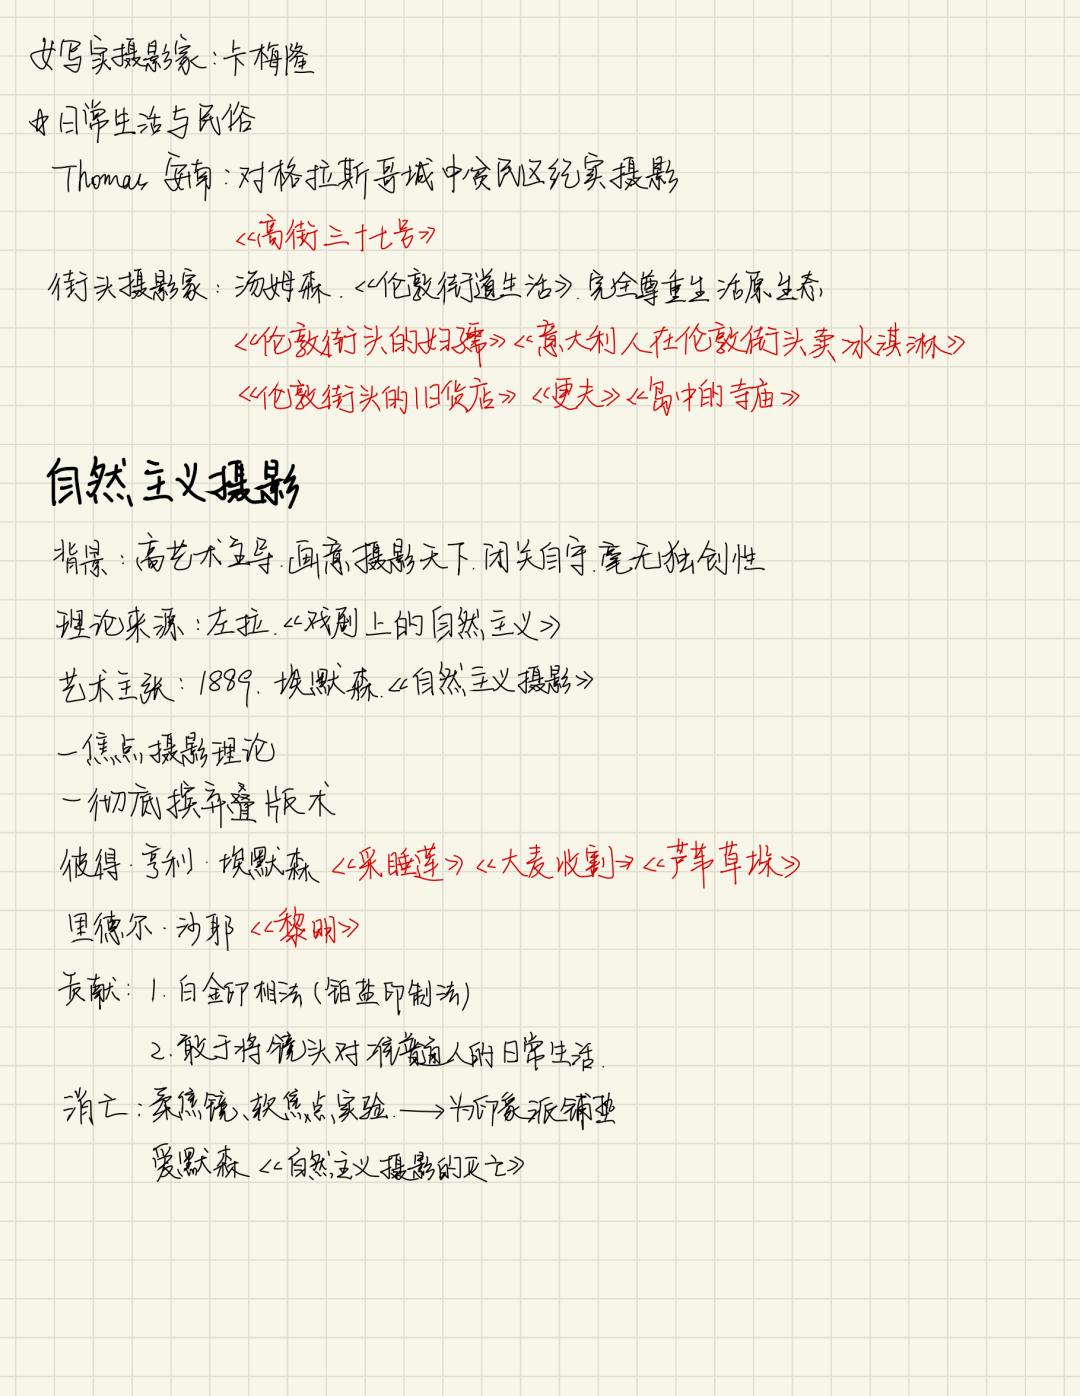 女写实摄影家：卡梅隆
☆日常生活与民俗
Thomas 安南：对格拉斯哥城中贫民区纪实摄影
《高街三十七号》
街头摄影家：汤姆森.《伦敦街道生活》.完全尊重生活原生态
《伦敦街头的妇孺》《意大利人在伦敦街头卖冰淇淋》
《伦敦街头的旧货店》《更夫》《岛中的寺庙》
自然主义摄影
背景：高艺术主导.画意摄影天下.闭关自守.毫无独创性
理论来源：左拉.《戏剧上的自然主义》
艺术主张：1889. 埃默森.《自然主义摄影》
一焦点摄影理论
一彻底摈弃叠版术
彼得·亨利·埃默森《采睡莲》《大麦收割》《芦苇草垛》
里德尔·沙耶《黎明》
贡献：1. 白金印相法(铂盐印制法)
2.敢于将镜头对准普通人的日常生活.
消亡：柔焦镜、软焦点实验.→为印象派铺垫
爱默森《自然主义摄影的灭亡》